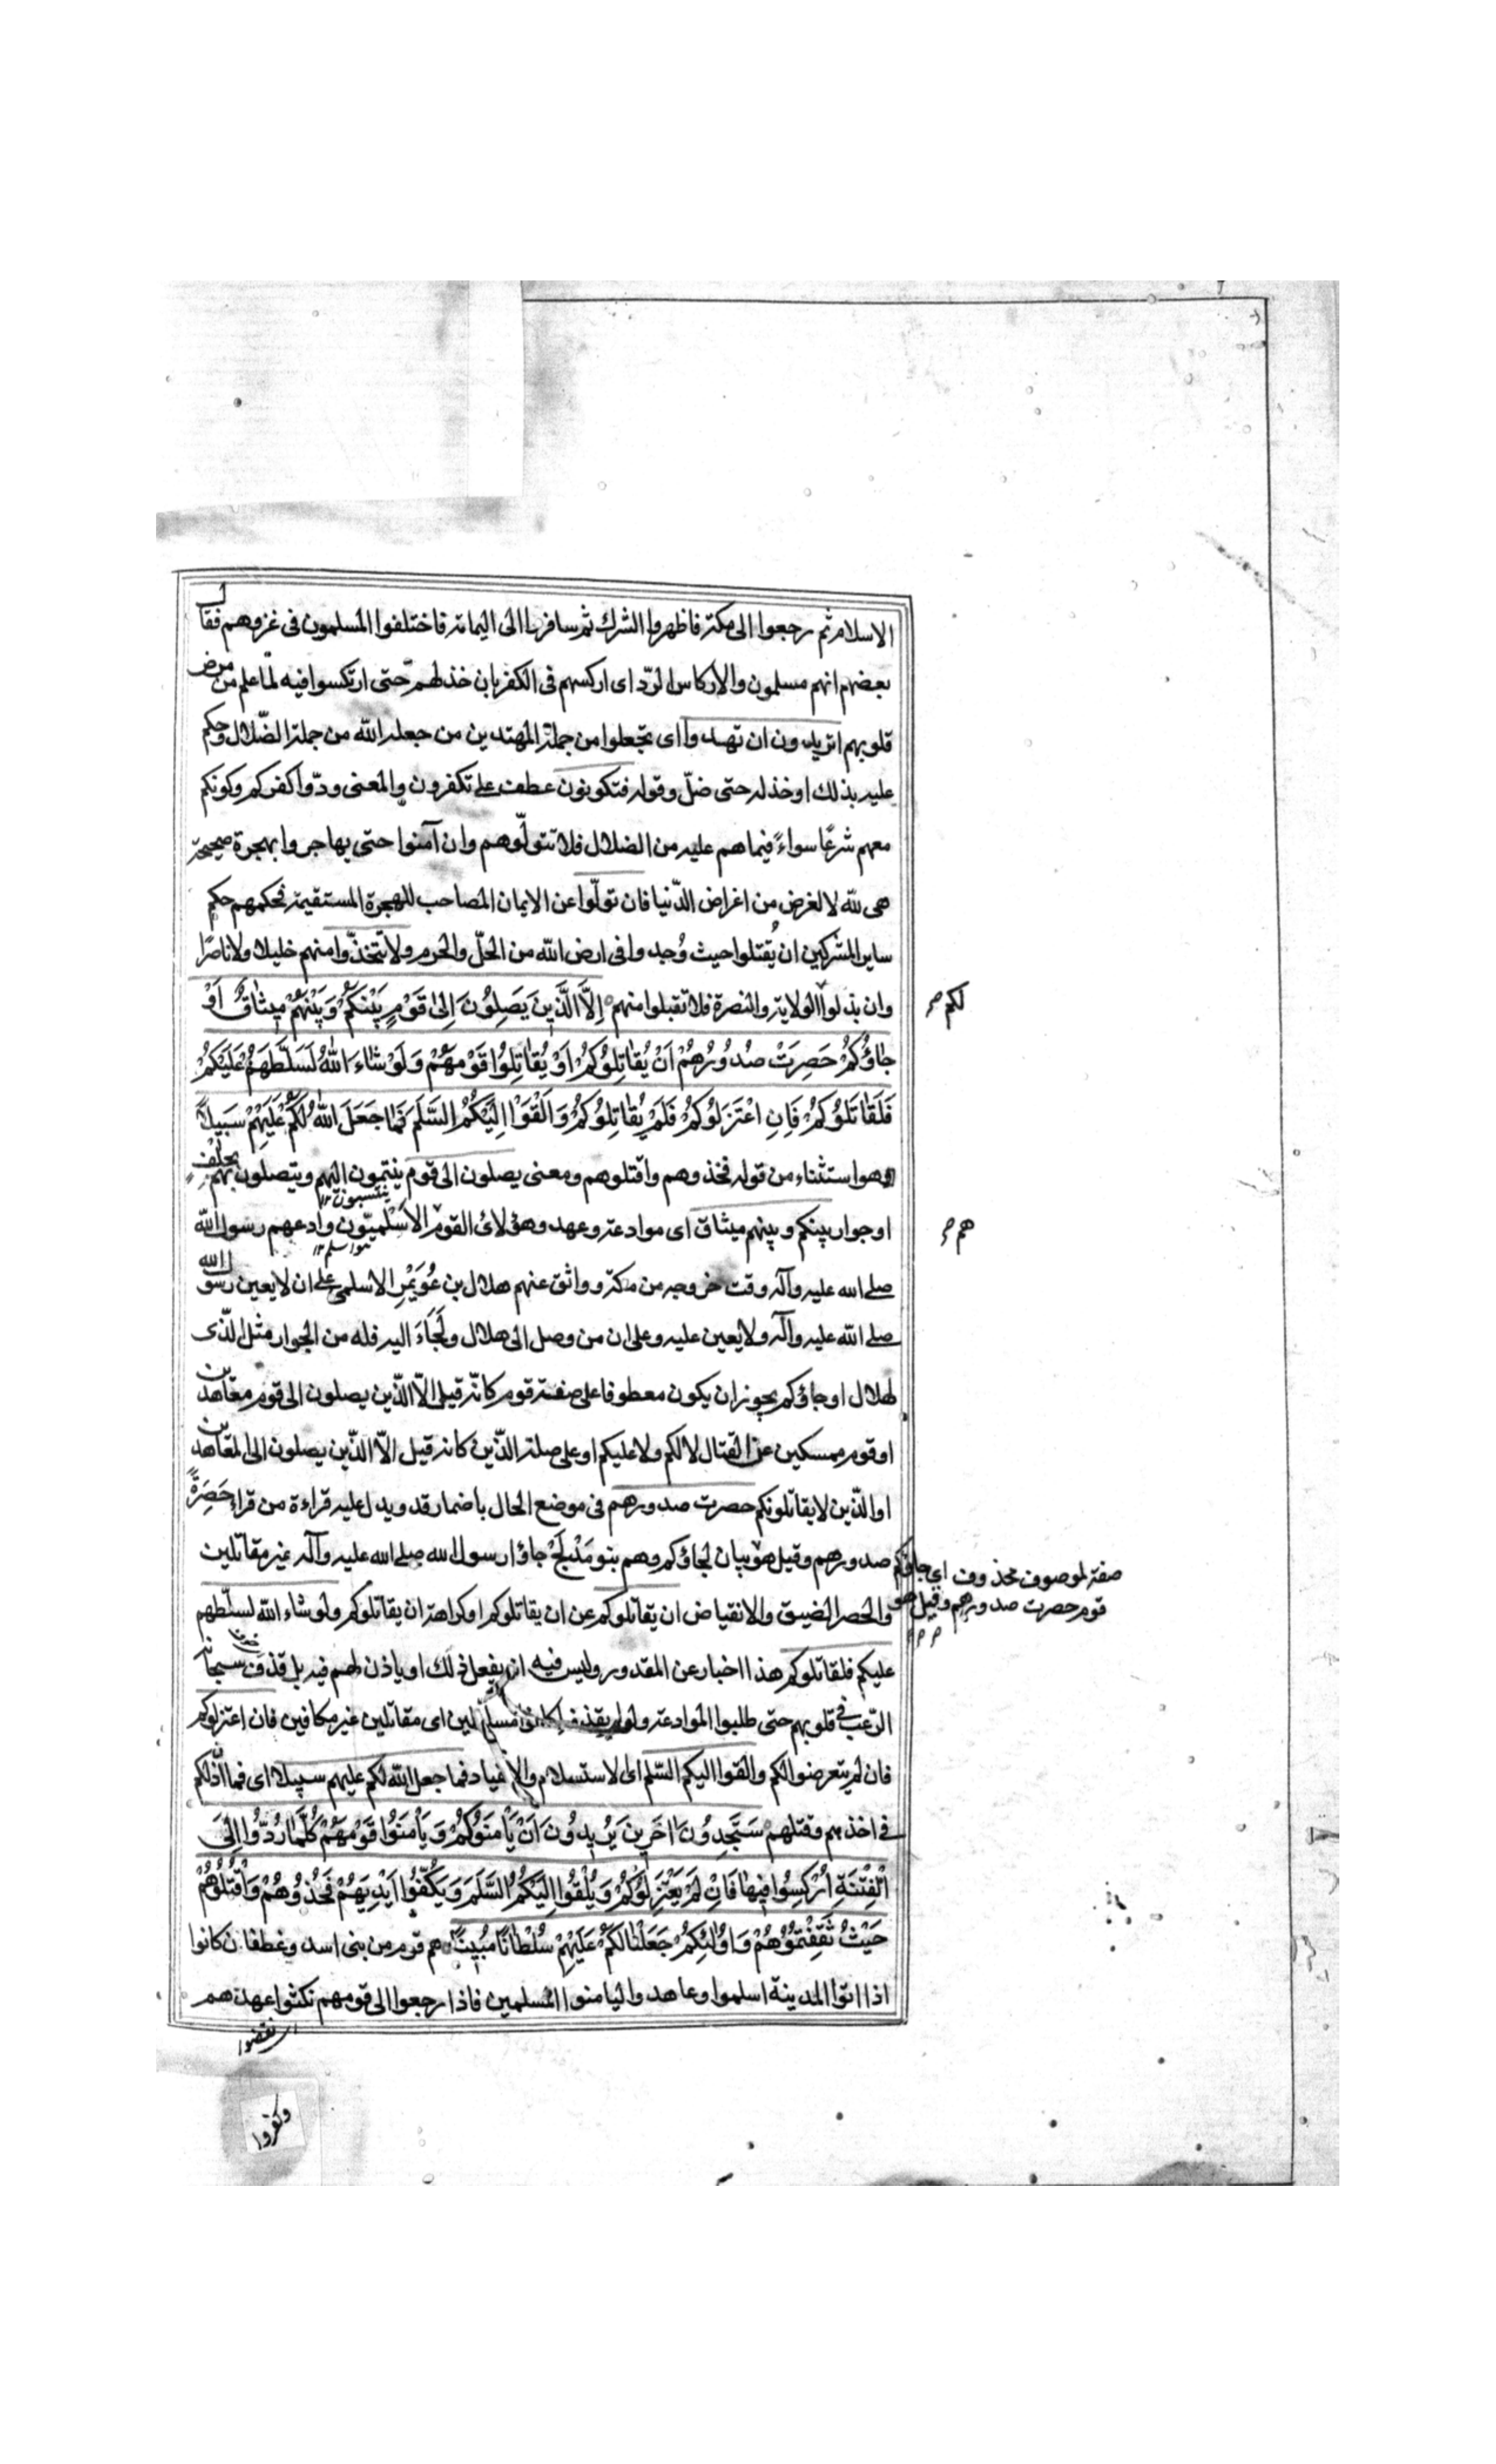 الاسلام ثم رجعوا الى مكة فاظهروا الشرك ثم سافروا الى اليمامة فاختلفوا المسلمون فى غزوهم فقال
بعضهم انهم مسلمون والاركاس الردّ اى اركسهم فى الكفر بان خذلهم حتى ارتكسوا فيه لما علم من مرض
قلوبهم اتريدون ان تهدوا اى تجعلوا من جملة المهتدين من جعله الله من جملة الضّلال وحكم
عليه بذلك او خذله حتى ضلّ وقوله فتكونون عطف على تكفرون والمعنى ودّوا كفركم وكونكم
معهم شرعًا سواءً فيما هم عليه من الضلال فلا تتولّوهم وان آمنوا حتى يهاجروا بهجرة صحيحة
هى لله لا لغرض من اغراض الدّنيا فان تولّوا عن الايمان المصاحب للهجرة المستقيمة فحكمهم حكم
ساير المشركين ان يُقتلوا حيث وُجدوا فى ارض الله من الحلّ والحرم ولا تتّخذوا منهم خليلا ولا ناصرًا
وان بذلوا الولاية والنصرة فلا تقبلوا منهم اِلَّا الَّذِينَ يَصِلُونَ اِلىٰ قَوْمٍ بَيْنَكُمْ وَبَيْنَهُمْ مِيثَاقٌ اَوْ
لكم
جَاؤُكُمْ حَصِرَتْ صُدُورُهُمْ اَنْ يُقَاتِلُوكُمْ اَوْ يُقَاتِلُوا قَوْمَهُمْ وَلَوْ شَاءَ اللهُ لَسَلَّطَهُمْ عَلَيْكُمْ
فَلَقَاتَلُوكُمْ فَاِنِ اعْتَزَلُوكُمْ فَلَمْ يُقَاتِلُوكُمْ وَاَلْقَوْا اِلَيْكُمُ السَّلَمَ فَمَا جَعَلَ اللهُ لَكُمْ عَلَيْهِمْ سَبِيلًا
وهو استثناء من قوله فخذوهم واقتلوهم ومعنى يصلون الى قوم ينتمون اليهم ويتصلون بهم بحلف
ينتسبون
او جوار بينكم وبينهم ميثاق اى موادعة وعهد وهؤلائ القوم الاسلميّون وادعهم رسول الله
هم
صلى الله عليه وآله وقت خروجه من مكة وواثق عنهم هلال بن عُوَيْمِرِ الاسلمى على ان لا يعين رسول الله
صلى الله عليه وآله ولا يعين عليه وعلى ان من وصل الى هلال ولَجَاءَ اليه فله من الجوار مثل الذى
لهلال او جاؤكم يجوز ان يكون معطوفا على صفة قوم كانّه قيل الّا الّذين يصلون الى قوم معاهدين
او قوم ممسكين عن القتال لا لكم ولا عليكم او على صلة الذّين كانه قيل الّا الّذين يصلون الى المعاهدين
او الّذين لا يقاتلونكم حصرت صدورهم فى موضع الحال باضمار قد ويدل عليه قراءة من قراء حَصِرَةً
صدورهم وقيل هو بيان لجاؤكم وهم بنو مدلج جاؤا رسول الله صلى الله عليه وآله غير مقاتلين
صفة لموصوف محذوف اى جاؤكم
قوم حصرت صدورهم وقيل هو
والحصر الضيق والانقباض ان يقاتلوكم عن ان يقاتلوكم او كراهة ان يقاتلوكم ولو شاء الله لسلّطهم
عليكم فلقاتلوكم هذا اخبار عن المقدور وليس فيه انه يفعل ذلك او ياذن لهم فيه بل قذف سبحانه
الرّعب فى قلوبهم حتى طلبوا الموادعة ولو لم يقذف لكانوا مسلّطين اى مقاتلين غير مكافين فان اعتزلوكم
فان لم يتعرضوا لكم والقوا اليكم السّلم اى الاستسلام والانقياد فما جعل الله لكم عليهم سبيلا اى فما اذن لكم
فى اخذهم وقتلهم سَتَجِدُونَ اٰخَرِينَ يُرِيدُونَ اَنْ يَأْمَنُوكُمْ وَيَأْمَنُوا قَوْمَهُمْ كُلَّمَا رُدُّوا اِلَى
الْفِتْنَةِ اُرْكِسُوا فِيهَا فَاِنْ لَمْ يَعْتَزِلُوكُمْ وَيُلْقُوا اِلَيْكُمُ السَّلَمَ وَيَكُفُّوا اَيْدِيَهُمْ فَخُذُوهُمْ وَاقْتُلُوهُمْ
حَيْثُ ثَقِفْتُمُوهُمْ وَاُولٰئِكُمْ جَعَلْنَا لَكُمْ عَلَيْهِمْ سُلْطَانًا مُبِينًا هم قوم من بنى اسد وغطفان كانوا
اذا اتوا المدينة اسلموا وعاهدوا ليامنوا المسلمين فاذا رجعوا الى قومهم نكثوا عهدهم
نقضوا
وكفروا